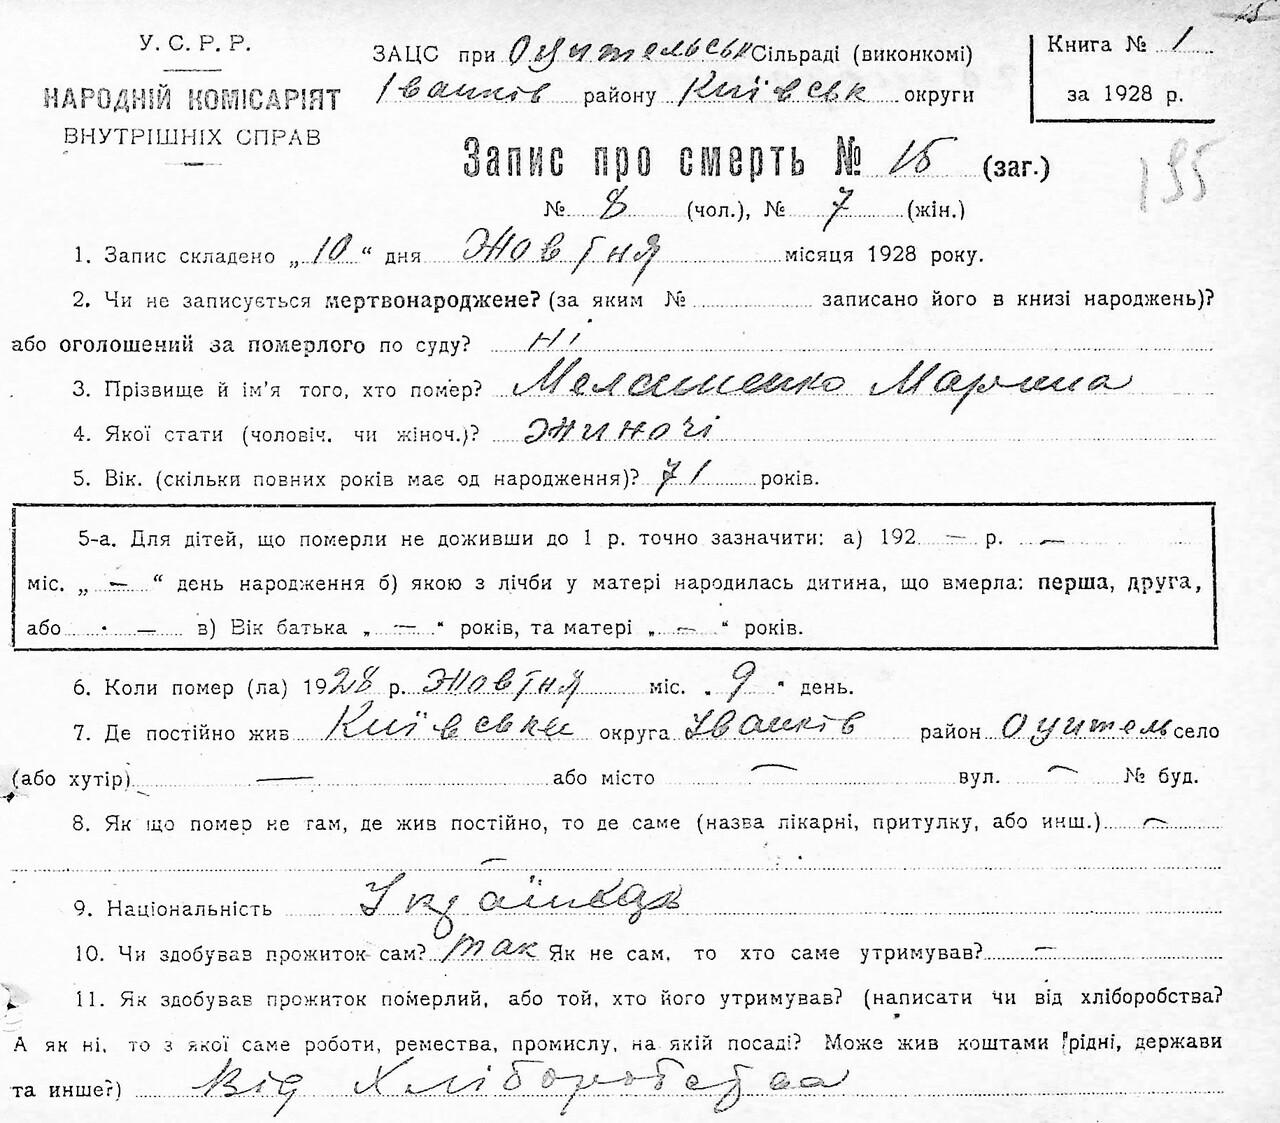 15
У. С. Р. Р.
НАРОДНІЙ КОМІСАРІЯТ
ВНУТРІШНІХ СПРАВ
ЗАЦС при Оцительськ Сільраді (виконкомі)
Іванків району Київськ округи
Книга № 1
за 1928 р.
Запис про смерть № 15 (заг.)
195
№ 8 (чол.), № 7 (жін.)
1. Запис складено „10“ дня Жовтня місяця 1928 року.
2. Чи не записується мертвонароджене? (за яким № записано його в книзі народжень)?
або оголошений за померлого по суду? ні
3. Прізвище й ім'я того, хто помер? Мелашенко Марина
4. Якої стати (чоловіч. чи жіноч.)? жиночі
5. Вік. (скільки повних років має од народження)? 71 років.
5-а. Для дітей, що померли не доживши до 1 р. точно зазначити: а) 192 — р. —
міс. „ — “ день народження б) якою з лічби у матері народилась дитина, що вмерла: перша, друга,
або — в) Вік батька „ — “ років, та матері „ — “ років.
6. Коли помер (ла) 1928 р. жовтня міс. 9 день.
7. Де постійно жив Київська округа Іванків район Оцитель село
(або хутір) — або місто — вул. — № буд.
8. Як що помер не там, де жив постійно, то де саме (назва лікарні, притулку, або инш.) —
—
9. Національність Українка
10. Чи здобував прожиток сам? так Як не сам, то хто саме утримував? —
11. Як здобував прожиток померлий, або той, хто його утримував? (написати чи від хліборобства?
А як ні, то з якої саме роботи, ремества, промислу, на якій посаді? Може жив коштами рідні, держави
та инше?) Від Хліборобства